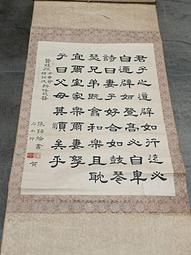 君子之道辟如行遠必
自邇辟如登高必自卑
詩曰妻子好合如鼓瑟
琴兄弟既翕和樂且耽
宜爾室家樂爾妻孥
子曰父母其順矣乎